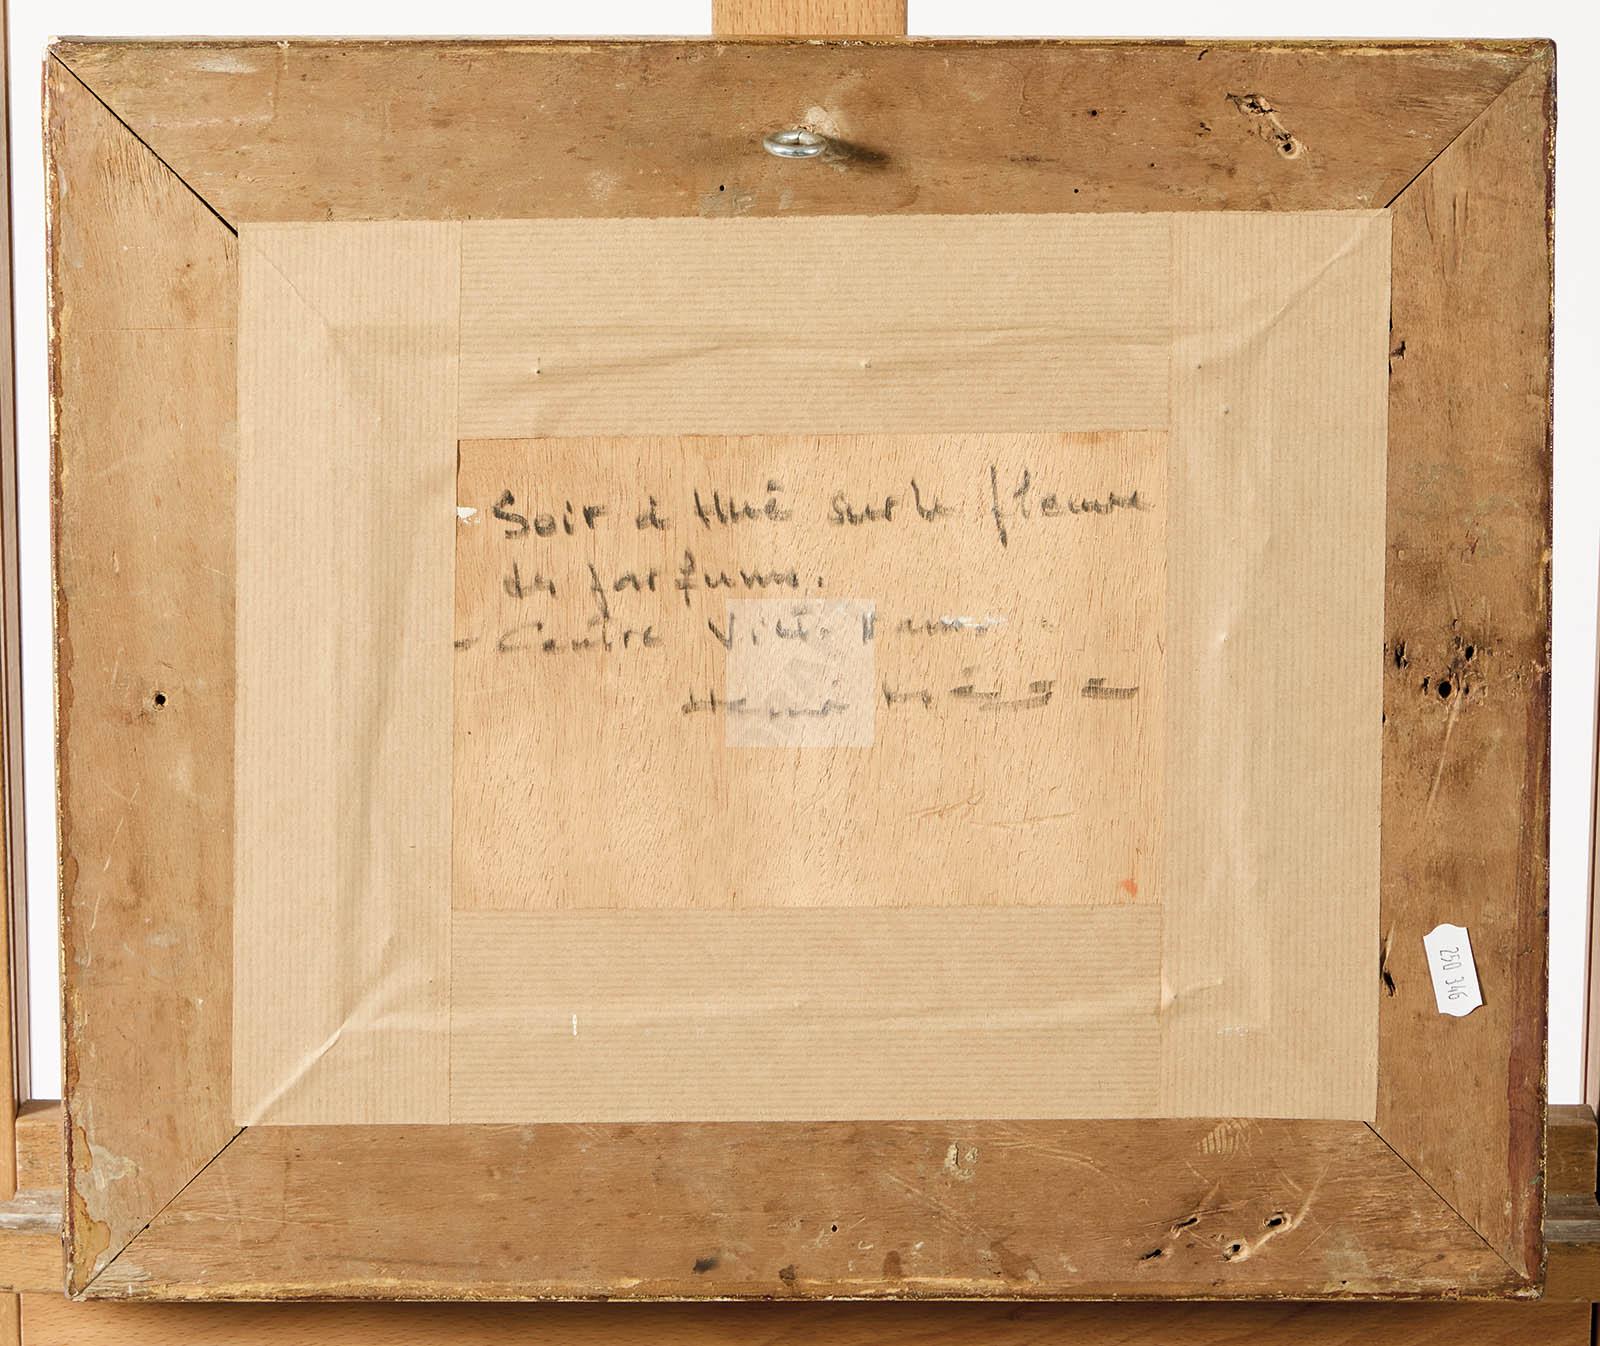 Soir à Hué sur le fleuve
des parfums.
- Centre Viêt. Nam -
Henri Mège
250 346